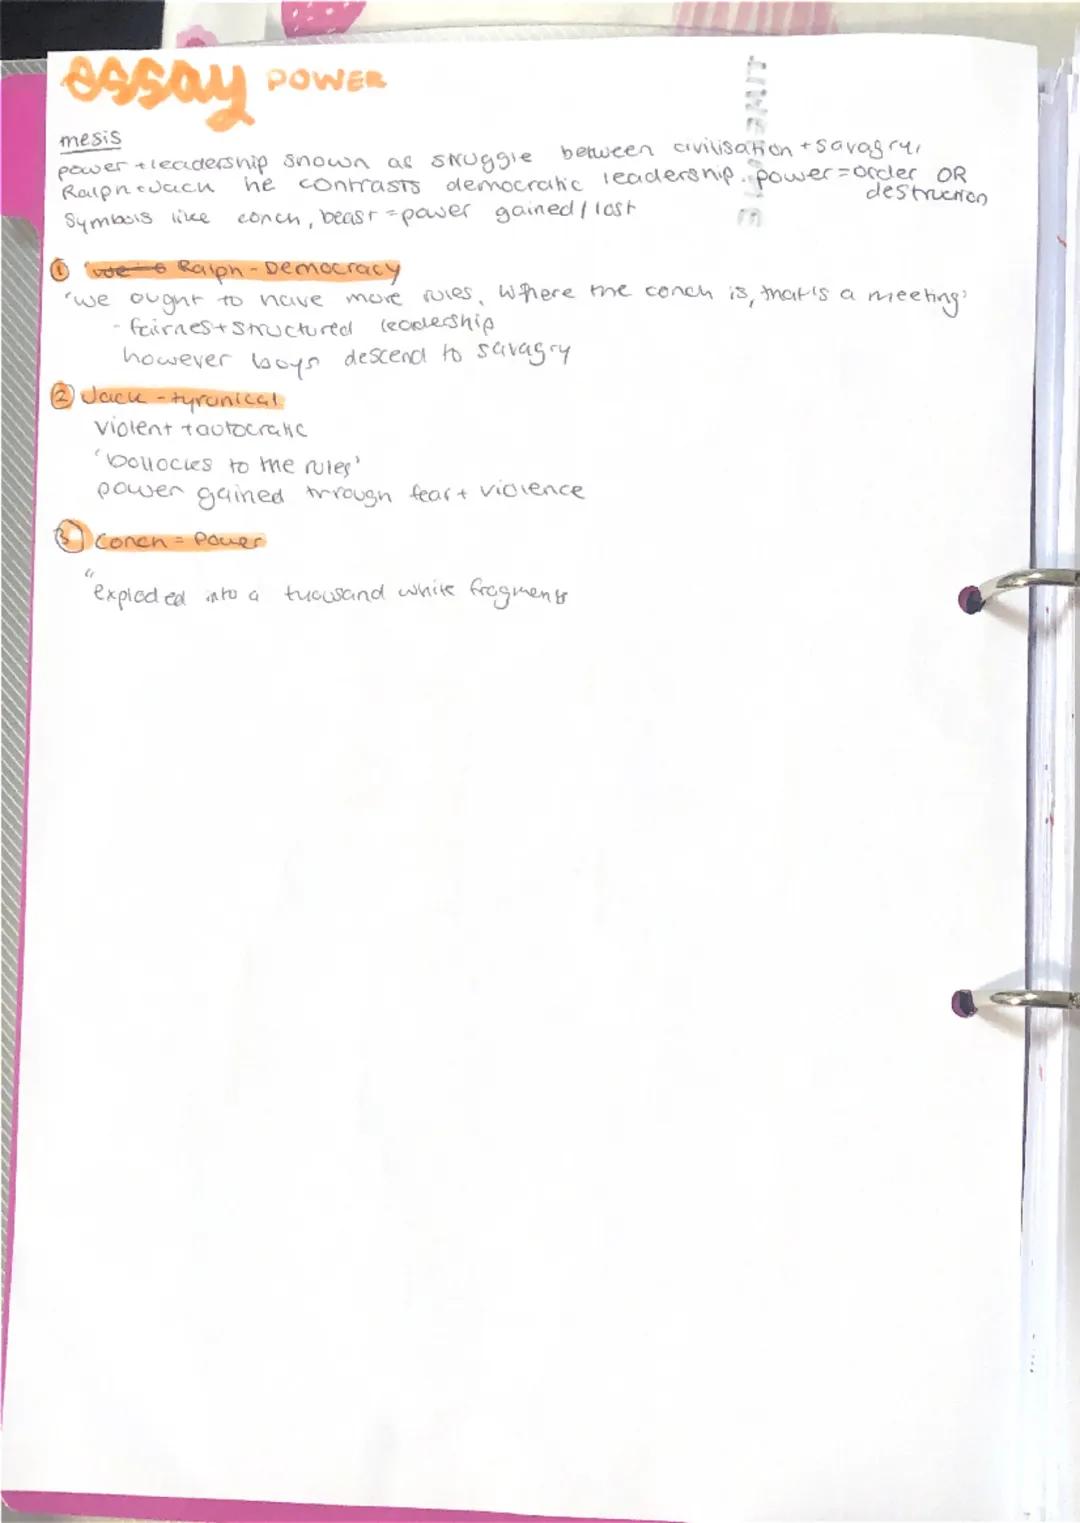 essay POWER
thesis
power + leadership shown as struggle between civilisation + savagry,
Ralph + Jack he contrasts democratic leadership. power = order OR
destruction
Symbols like conch, beast = power gained / lost
① Ralph - Democracy
'we ought to have more rules, where the conch is, that's a meeting'
- fairnes + structured leadership
however boys descend to savagry
② Jack - tyronical
violent + autocratic
'bollocks to the rules'
power gained through fear + violence
③ Conch = Power
"exploded into a thousand white fragments